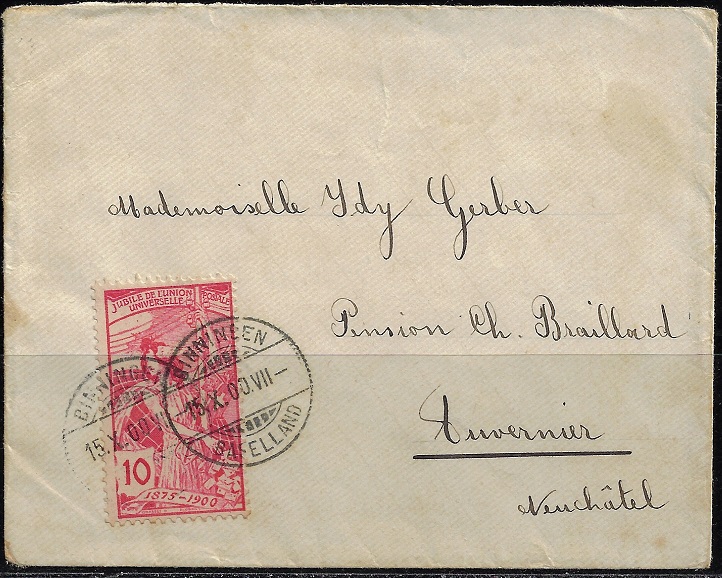 Mademoiselle Idy Gerber
Pension Ch. Braillard
Auvernier
Neuchâtel
JUBILÉ DE L'UNION POSTALE
UNIVERSELLE
10
1875-1900
BINNINGEN
15.X.00.VII-
BINNINGEN
15.X.00.VII-
BASELLAND